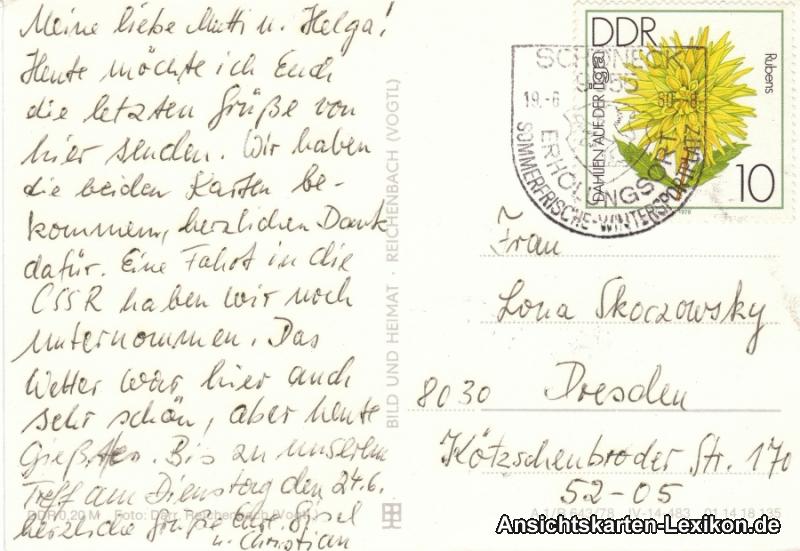 Meine liebe Mutti u. Helga!
Heute möchte ich Euch
die letzten Grüße von
hier senden. Wir haben
die beiden Karten be-
kommen, herzlichen Dank
dafür. Eine Fahrt in die
CSSR haben wir noch
unternommen. Das
Wetter war hier auch
sehr schön, aber heute
gießt es. Bis zu unserem
Treff am Dienstag den 24.6.
herzliche Grüße Eure Gisel
u. Christian
DDR 0,20 M Foto: Darr, Reichenbach (Vogtl.)
BILD UND HEIMAT · REICHENBACH (VOGTL)
DDR
DAHLIEN AUS DER iga
Rubens
10
1979
SCHÖNECK
19.-6. 80.-8
ERHOLUNGSORT
SOMMERFRISCHE-WINTERSPORTPLATZ
Frau
Lona Skoczowsky
8030 Dresden
Kötzschenbroder Str. 170
52-05
A 1/B 642/78 IV-14-483 01 14 18 135
Ansichtskarten-Lexikon.de